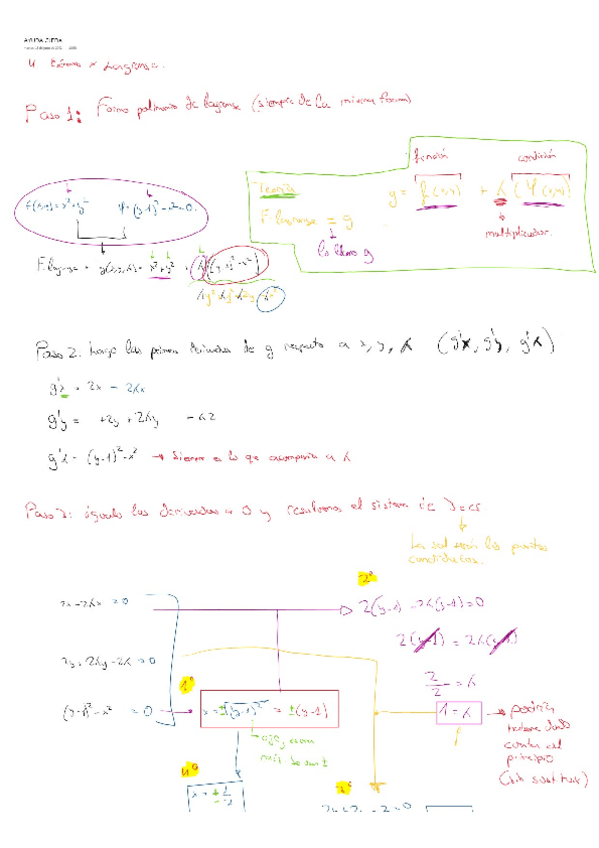 AYUDA
4. Extremos x Lagrange.
Paso 1: Forma polinomio de lagrange (siempre de la misma forma)
función condición
Teoría g = f(x,y) + λ (φ(x,y))
F. lagrange = g
multiplicador
lo llamo g
f(x,y) = x²+y² φ = (y-1)²-x² = 0
F. lagrange = g(x,y,λ) = x²+y² + λ((y-1)²-x²)
Paso 2. hago las primeras derivadas de g respecto a x, y, λ (g'x, g'y, g'λ)
g'x = 2x - 2λx
g'y = +2y + 2λy - λ2
g'λ = (y-1)²-x² → Siempre es lo que acompaña a λ
Paso 3: igualo las derivadas a 0 y resolvemos el sistema de 3 ecs
Las sol serán los puntos
candidatos.
2º
2x-2λx = 0
2(y-1) - 2λ(y-1) = 0
2(y-1) = 2λ(y-1)
2y+2λy-2λ = 0
2/2 = λ
1º
(y-1)²-x² = 0
x = ±√(y-1)² = ±(y-1)
1 = λ → podría
haberse dado
cuenta al
principio
(sin sustituir)
ojo, como
raíz
4º
x = ± 1/2